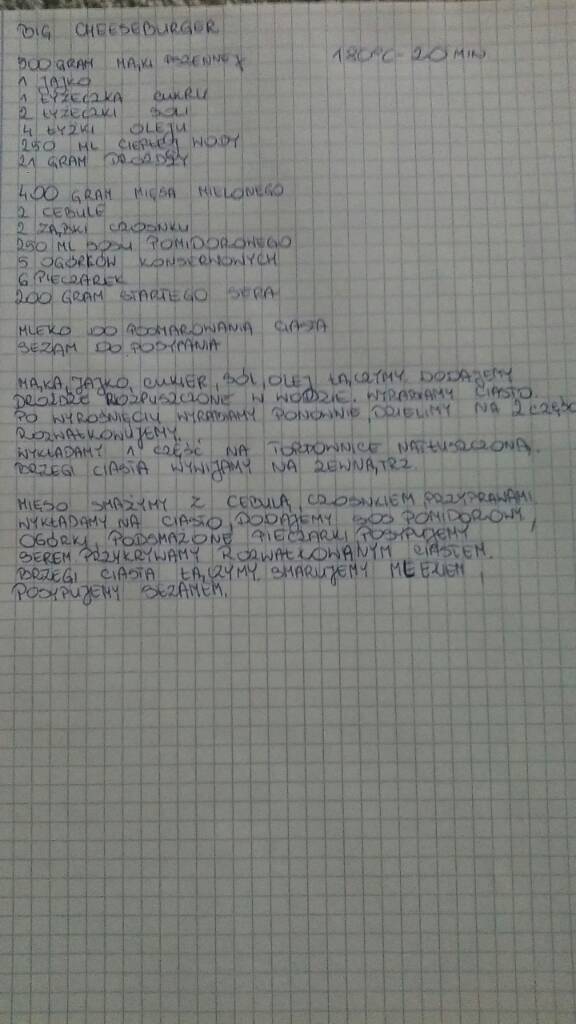 BIG CHEESEBURGER
500 GRAM MĄKI PSZENNEJ 180°C - 20 MIN
1 JAJKO
1 ŁYŻECZKA CUKRU
2 ŁYŻECZKI SOLI
4 ŁYŻKI OLEJU
250 ML CIEPŁEJ WODY
21 GRAM DROŻDŻY
400 GRAM MIĘSA MIELONEGO
2 CEBULE
2 ZĄBKI CZOSNKU
250 ML SOSU POMIDOROWEGO
5 OGÓRKÓW KONSERWOWYCH
6 PIECZAREK
200 GRAM STARTEGO SERA
MLEKO DO POSMAROWANIA CIASTA
SEZAM DO POSYPANIA
MĄKA, JAJKO, CUKIER, SÓL, OLEJ ŁĄCZYMY DODAJEMY
DROŻDŻE ROZPUSZCZONE W WODZIE. WYRABIAMY CIASTO.
PO WYROŚNIĘCIU WYRABIAMY PONOWNIE, DZIELIMY NA 2 CZĘŚCI
ROZWAŁKOWUJEMY.
WYKŁADAMY 1 CZĘŚĆ NA TORTOWNICE NATŁUSZCZONĄ,
BRZEGI CIASTA WYWIJAMY NA ZEWNĄTRZ.
MIĘSO SMAŻYMY Z CEBULĄ, CZOSNKIEM, PRZYPRAWAMI
WYKŁADAMY NA CIASTO, DODAJEMY SOS POMIDOROWY,
OGÓRKI, PODSMAŻONE PIECZARKI, POSYPUJEMY
SEREM, PRZYKRYWAMY ROZWAŁKOWANYM CIASTEM.
BRZEGI CIASTA ŁĄCZYMY, SMARUJEMY MLEKIEM,
POSYPUJEMY SEZAMEM.